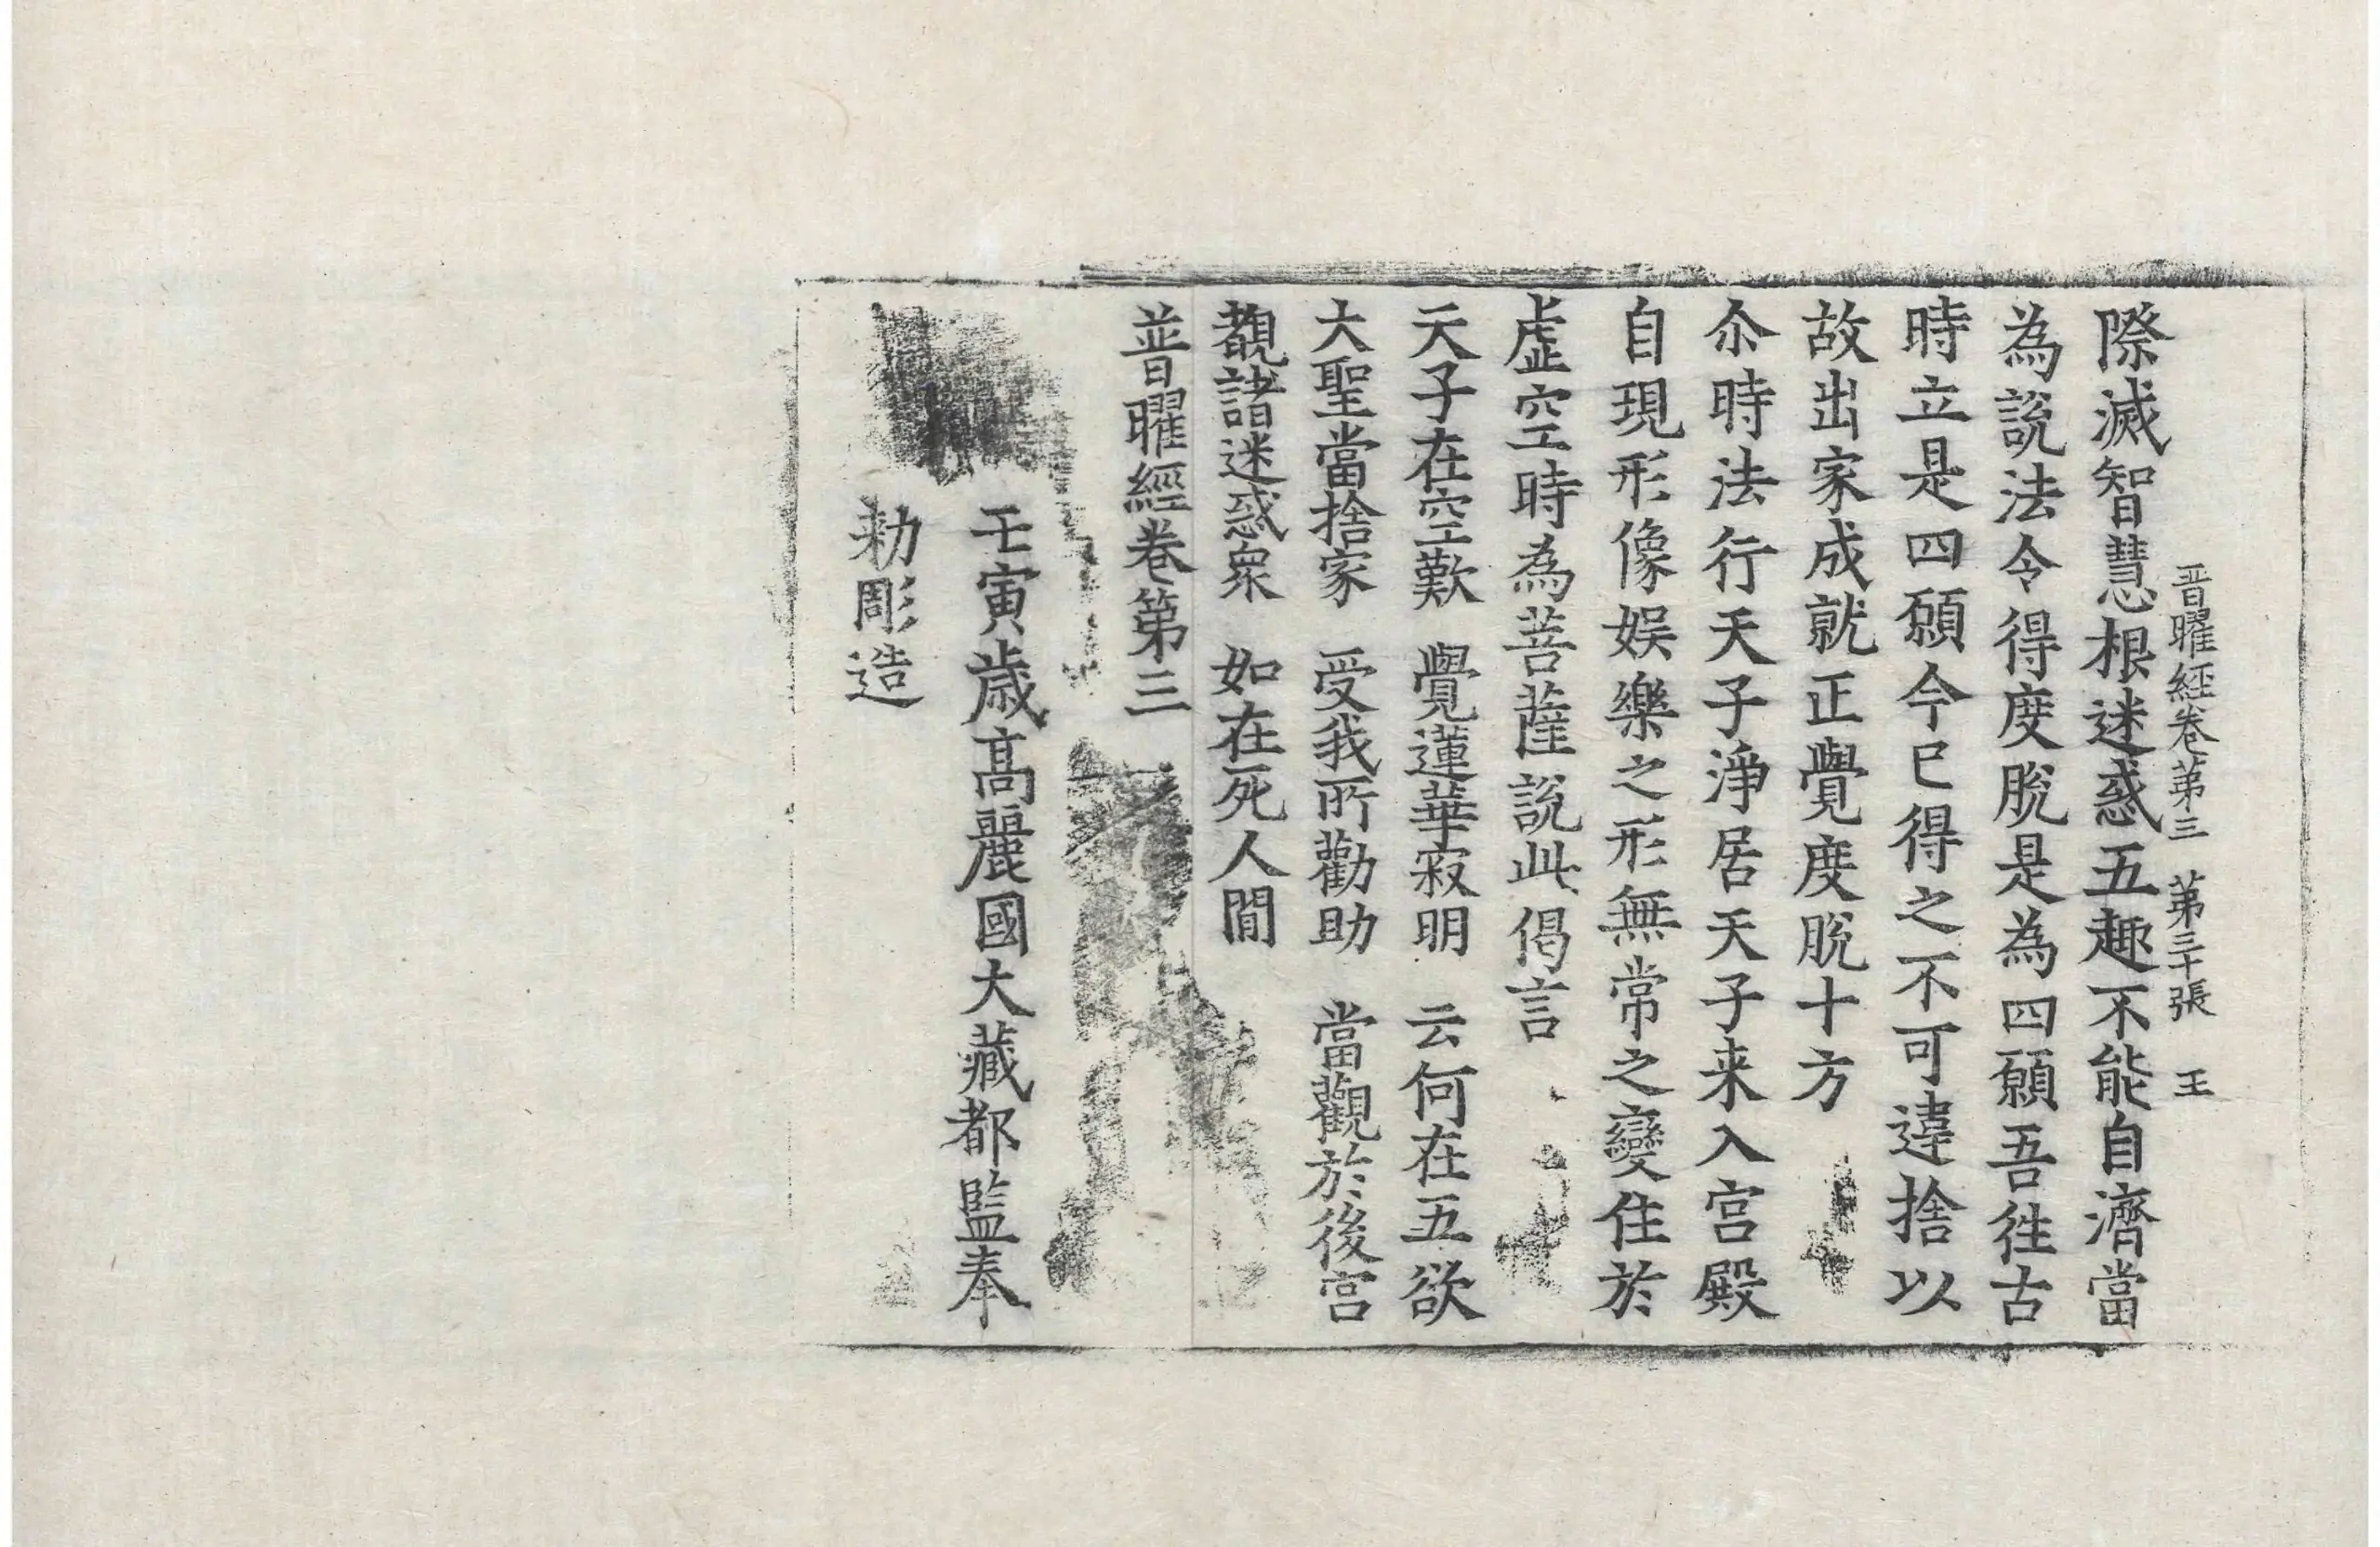 普曜經卷第三　第三十張　王
際滅智慧根迷惑五趣不能自濟當
為說法令得度脫是為四願吾徃古
時立是四願今已得之不可違捨以
故出家成就正覺度脫十方
尒時法行天子淨居天子来入宮殿
自現形像娛樂之形無常之變住於
虛空時為菩薩說此偈言
天子在空歎　覺蓮華寂明　云何在五欲
大聖當捨家　受我所勸助　當觀於後宮
觀諸迷惑衆　如在死人間
普曜經卷第三
壬寅歳高麗國大藏都監奉
勑彫造